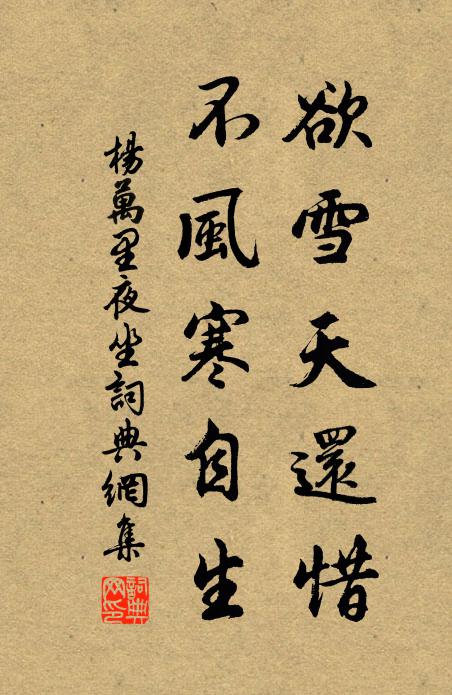 欲雪天還惜
不風寒自生
楊萬里夜坐詞典網集
詞典网印